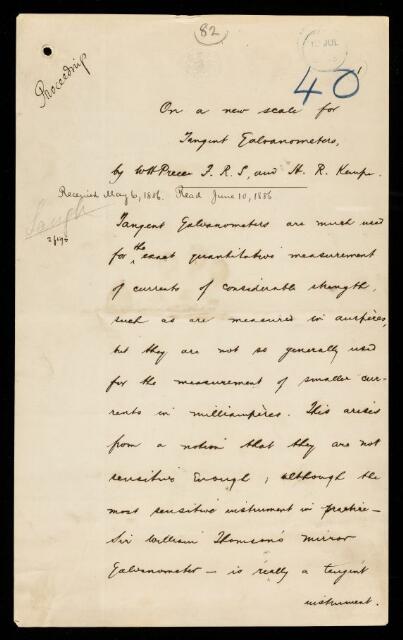 82
JUL
40
Proceedings
On a new scale for
Tangent Galvanometers,
by W H Preece F. R. S, and H. R. Kempe.
Received May 6, 1886. Read June 10, 1886
Tangent Galvanometers are much used
for the exact quantitative measurement
of currents of considerable strength,
such as are measured in ampères,
but they are not so generally used
for the measurement of smaller cur-
rents in milliampères. This arises
from a notion that they are not
sensitive enough; although the
most sensitive instrument in practice -
Sir William Thomson's mirror
Galvanometer - is really a tangent
instrument.